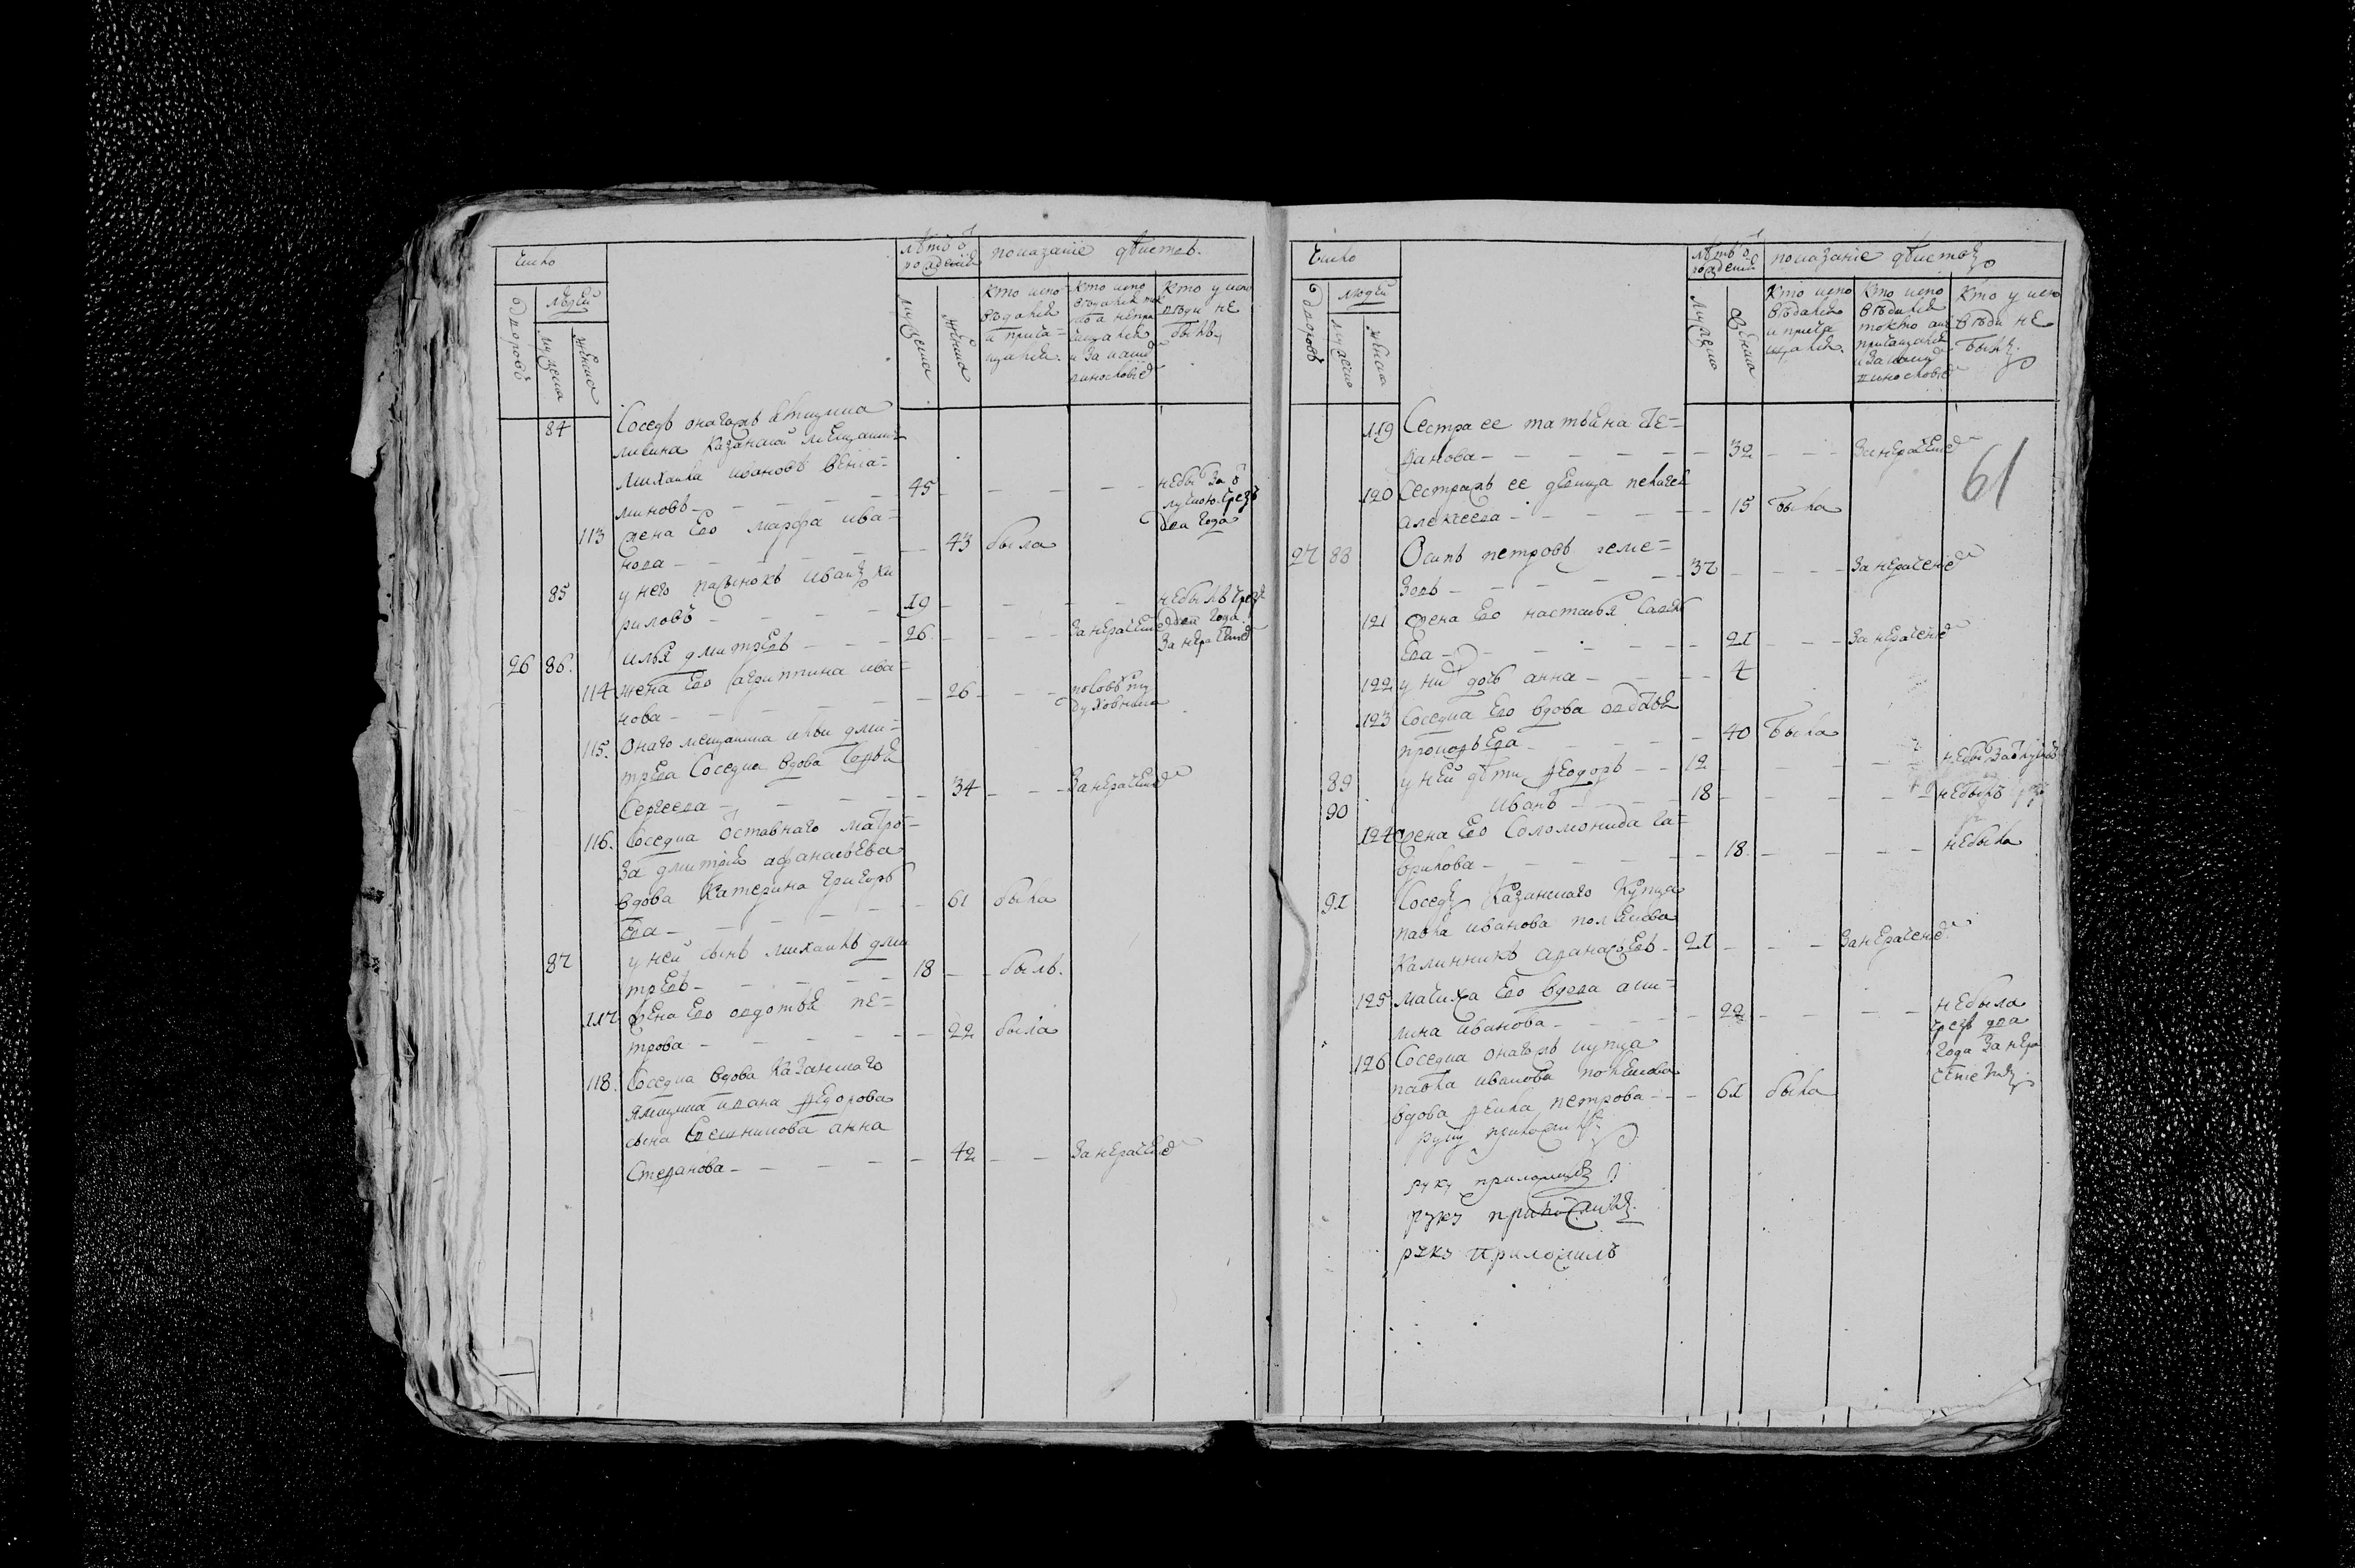 Число
лѣтъ о рожденія
показаніе дѣйствъ.
дворовъ
людей
мужеска
женска
мужеска
женска
кто испо
вѣдался
и прича=
щался.
кто испо
вѣдался ток
мо а непри
чащался
и за какимъ
винословіемъ
кто у испо
вѣди не
былъ
84
Соседъ онагожъ
казанской мещанинъ
Михаила ивановъ Вениа=
миновъ
45
небы за о
лучкою чрезъ
два года
113
жена Его марфа ива=
нова
43
была
85
у него пасынокъ иванъ ки
риловъ
19
небылъ чрезъ
два года
за нераченіемъ
26
86.
илья дмитревъ
26
за нераченіемъ
114
жена Его агриппина ива=
нова
26
по совѣту
духовника
115.
Онаго мещанина ильи дми=
трева Соседка вдова
Сергеева
34
За нераченіемъ
116.
Соседка оставнаго матро=
за дмитрия афанасьева
вдова Катерина григорь
ева
61
была
87
у ней сынъ михаилъ дми
тревъ
18
былъ.
117
жена Его авдотья пе=
трова
22
была
118.
Соседка вдова казанскаго
ямщика ивана федорова
сына анна
Стефанова
42
За нераченіемъ
Число
лѣтъ о рожденія
показаніе дѣйствъ
дворовъ
людей
мужеско
женска
мужеско
женска
кто испо
вѣдался
и прича
щался.
кто испо
вѣдался
токмо а не
причащался
и за какимъ
винословіемъ
кто у испо
вѣди не
былъ.
61
119
Сестра ее татьяна
32
За нераченіемъ
120
Сестражъ ее девица пелагея
алексеева
15
была
27
88
Осипъ петровъ
37
За нераченіемъ
121
жена Его настасья
21
За нераченіемъ
122
у них дочь анна
4
123
Соседка Его вдова авдотья
прокофьева
40
была
89
у ней дѣти Федоръ
12
небы за отлучкою
90
иванъ
18
небылъ
124
жена Его Соломонида га=
врилова
18
небыла
91
Соседъ казанскаго купца
павла иванова
Калинникъ афанасьевъ
21
За нераченіемъ
125
мачиха Его вдова аки=
лина иванова
22
небыла
чрезъ два
года за нера
ченіемъ.
126
Соседка онагожъ купца
павла иванова
вдова фекла петрова
61
была
руку приложилъ
руку приложилъ
руку приложилъ
руку приложилъ